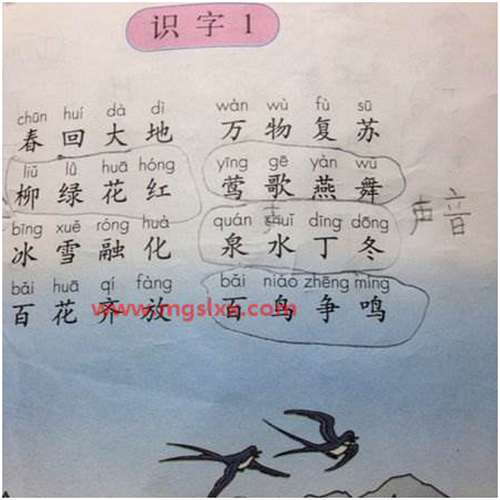 识字1
chūn huí dà dì wàn wù fù sū
春回大地 万物复苏
liǔ lǜ huā hóng yīng gē yàn wǔ
柳绿花红 莺歌燕舞
bīng xuě róng huà quán shuǐ dīng dōng
冰雪融化 泉水丁冬 声音
bǎi huā qí fàng bǎi niǎo zhēng míng
百花齐放 百鸟争鸣
www.mgslxx.com